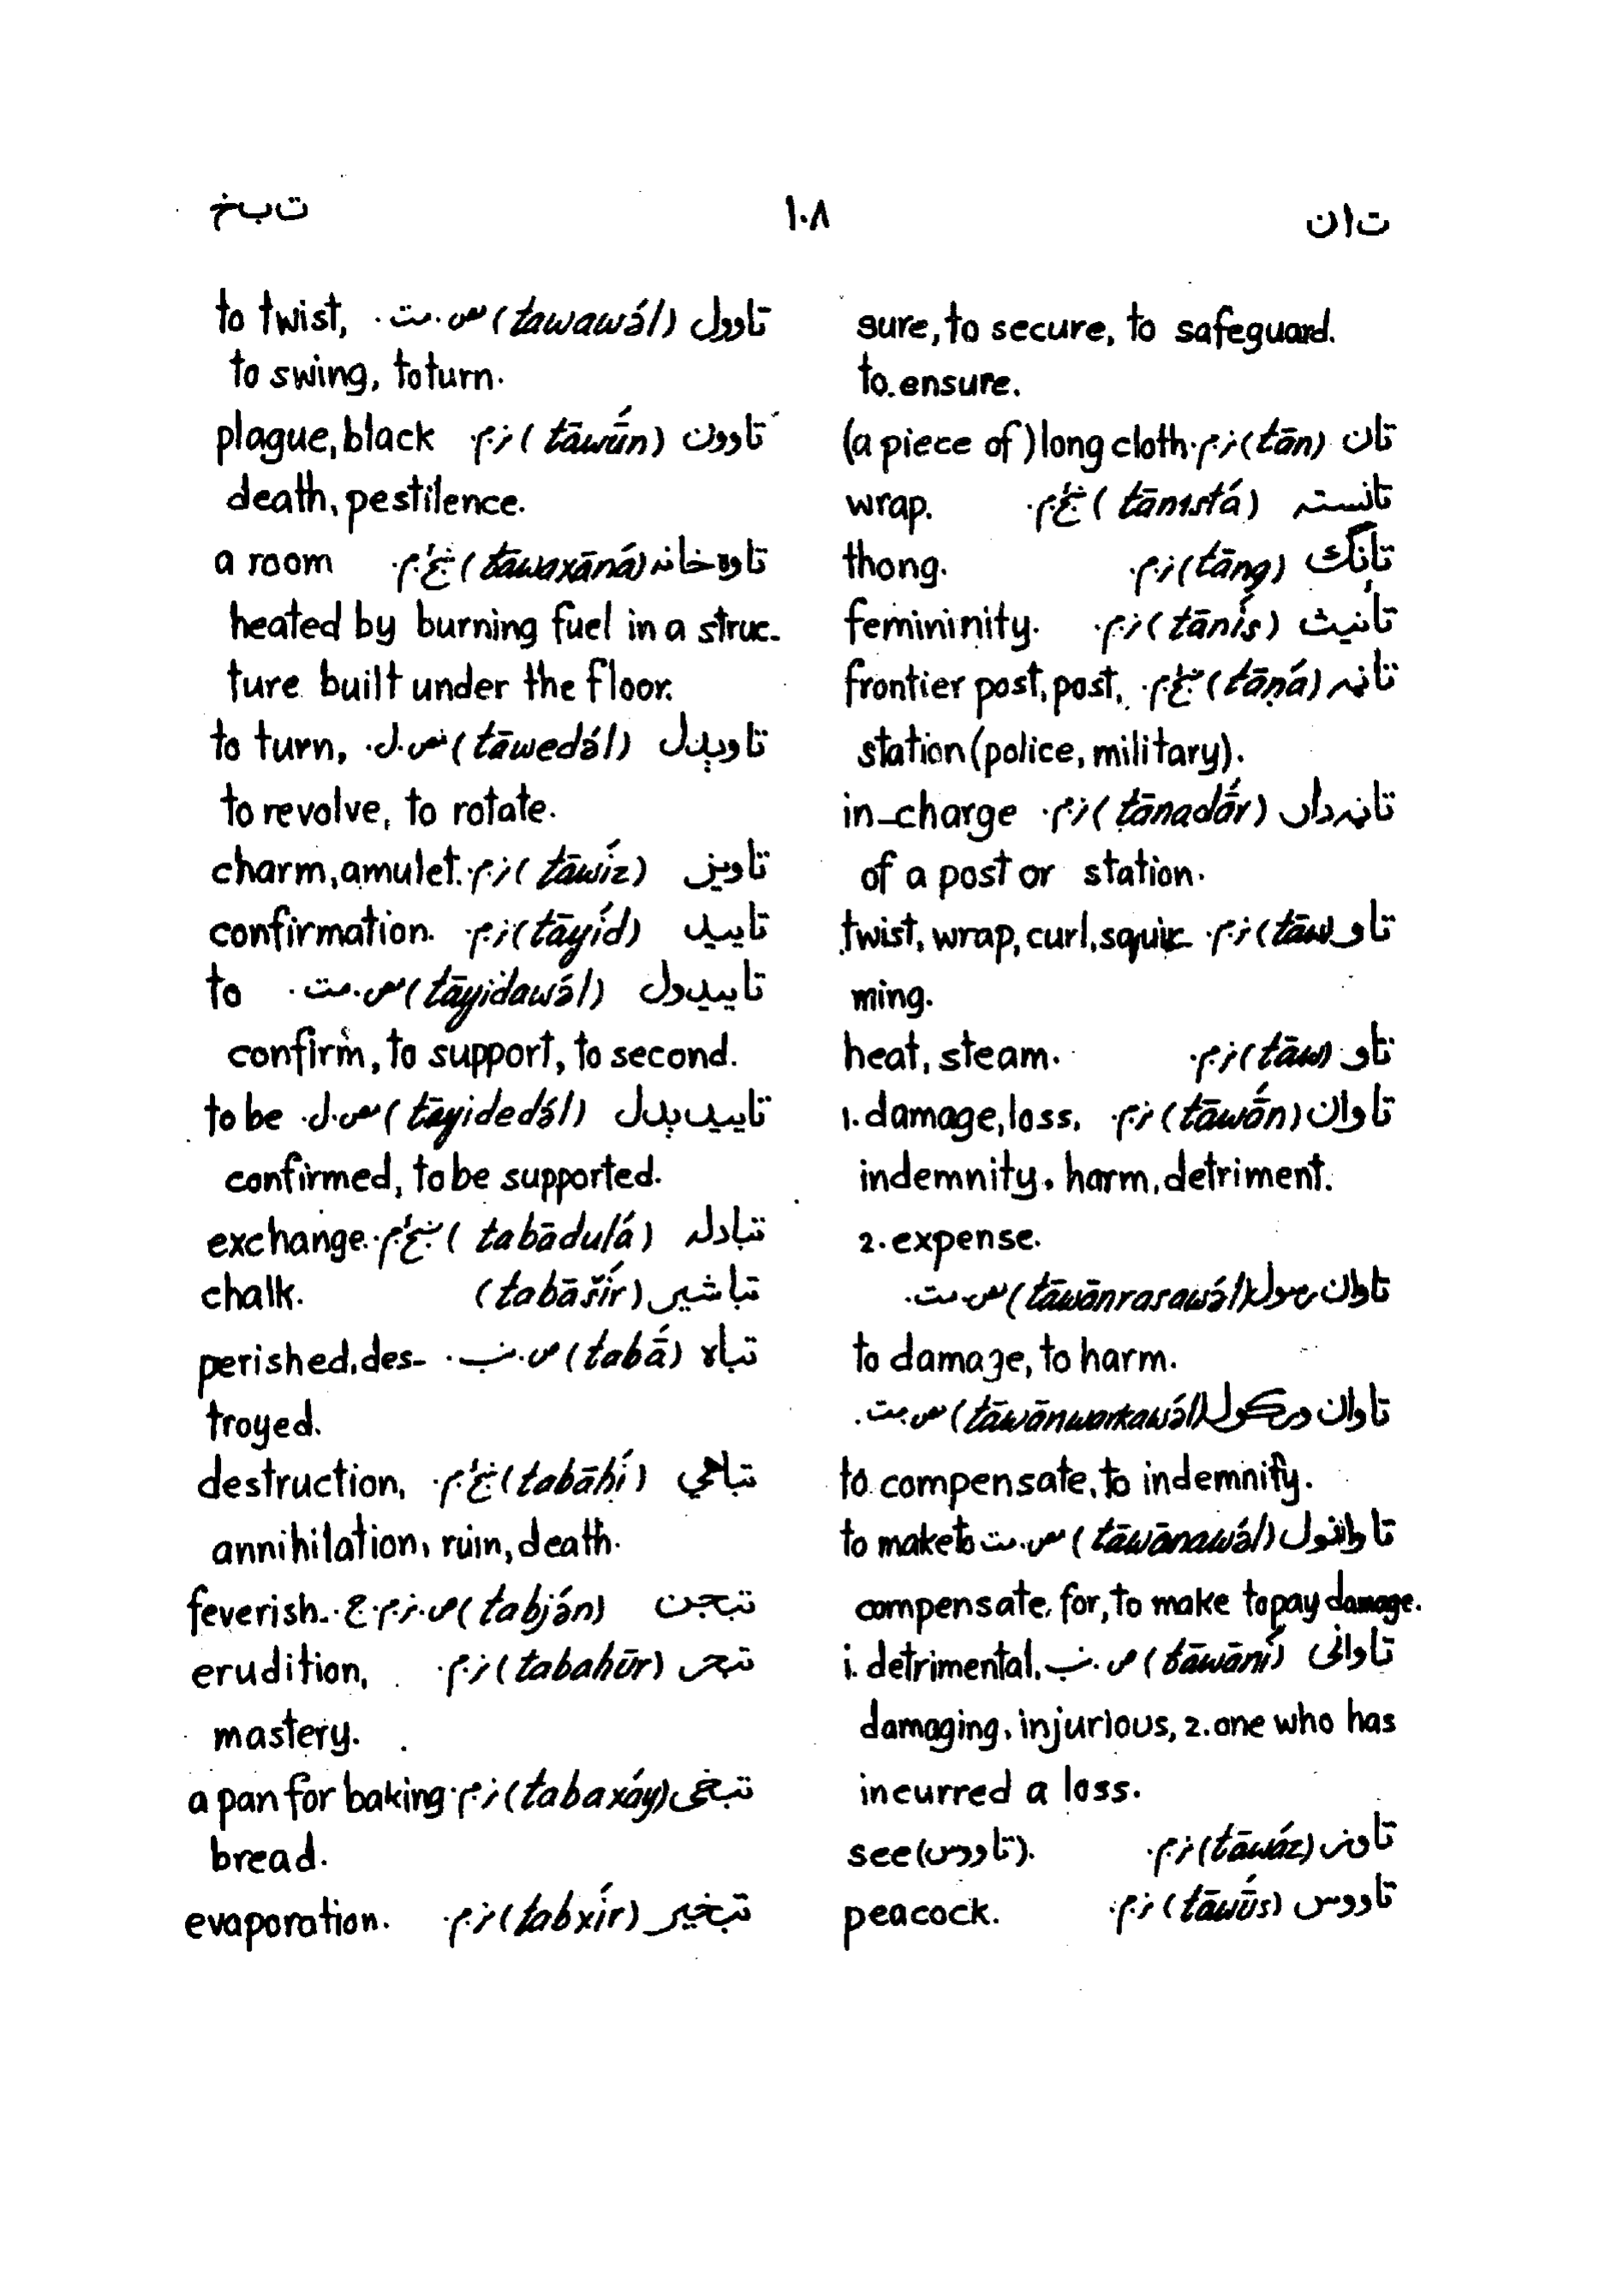 تان ۱۰۸ تبخ
sure, to secure, to safeguard.
to ensure.
تان (tān) ن.م. (a piece of) long cloth.
تانسته (tānɪstá) غ.م. wrap.
تانګ (tāng) ن.م. thong.
تانیث (tānís) ن.م. femininity.
تاڼه (tāṇá) غ.م. frontier post, post,
station (police, military).
تاڼه‌دار (tāṇadā́r) ن.م. in-charge
of a post or station.
تاو (tāw) ن.م. twist, wrap, curl, squir-
ming.
تاو (tāw) ن.م. heat, steam.
تاوان (tāwā́n) ن.م. 1. damage, loss,
indemnity, harm, detriment.
2. expense.
تاوان رسول (tāwānrasawə́l) مص.مت.
to damage, to harm.
تاوان ورکول (tāwānwarkawə́l) مص.مت.
to compensate, to indemnify.
تاوانول (tāwānawə́l) مص.مت. to make to
compensate, for, to make to pay damage.
تاوانی (tāwāní) ص.نب. 1. detrimental,
damaging, injurious, 2. one who has
incurred a loss.
(tāwáz) ن.م. see (تاووس).
تاووس (tāwū́s) ن.م. peacock.
تاوول (tawawə́l) مص.مت. to twist,
to swing, to turn.
تاوون (tāwū́n) ن.م. plague, black
death, pestilence.
تاوه‌خانه (tāwaxāná) غ.م. a room
heated by burning fuel in a struc-
ture built under the floor.
تاوېدل (tāwedə́l) مص.ل. to turn,
to revolve, to rotate.
تاویز (tāwíz) ن.م. charm, amulet.
تایید (tāyíd) ن.م. confirmation.
تاییدول (tāyidawə́l) مص.مت. to
confirm, to support, to second.
تاییدېدل (tāyidedə́l) مص.ل. to be
confirmed, to be supported.
تبادله (tabādulá) غ.م. exchange.
تباشیر (tabāšír) chalk.
تباه (tabā́) ص.نب. perished, des-
troyed.
تباهي (tabāhí) غ.م. destruction,
annihilation, ruin, death.
تبجن (tabjə́n) ص.ن.م.ج. feverish.
تبحر (tabahūr) ن.م. erudition,
mastery.
تبخی (tabaxáy) ن.م. a pan for baking
bread.
تبخیر (tabxír) ن.م. evaporation.